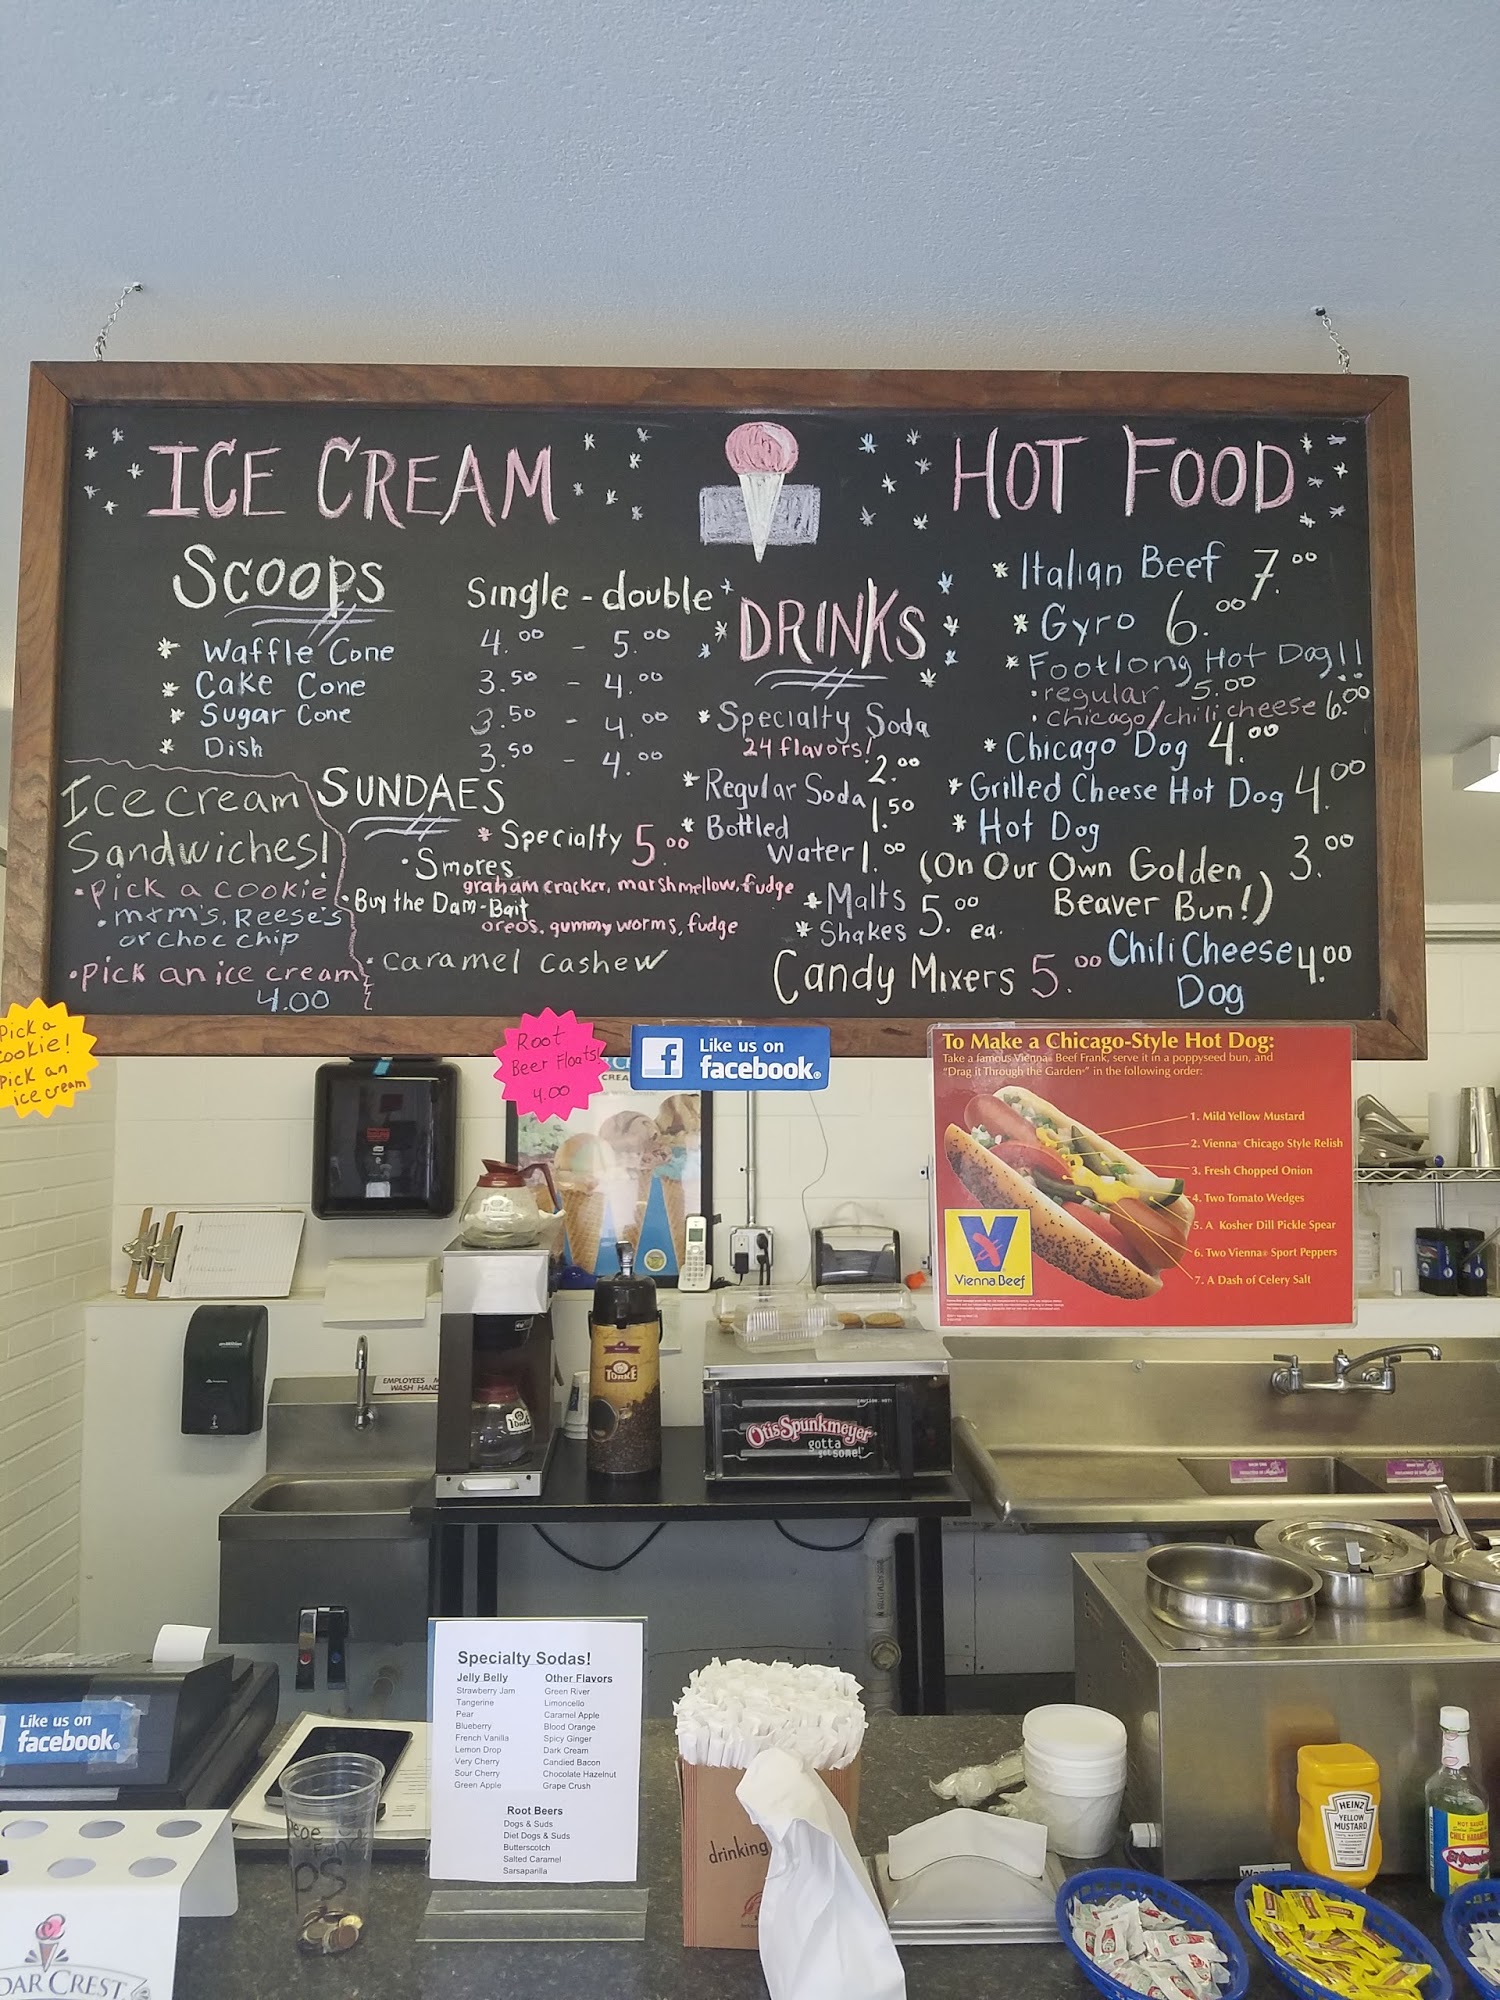 ICE CREAM
HOT FOOD
SCOOPS
Single - double
* Waffle Cone 4.00 - 5.00
* Cake Cone 3.50 - 4.00
* Sugar Cone 3.50 - 4.00
* Dish 3.50 - 4.00
Ice cream
Sandwiches!
• Pick a cookie
• m+m's, Reese's
or choc chip
• Pick an ice cream
4.00
SUNDAES
* Specialty 5.00
• Smores
graham cracker, marshmellow, fudge
• Buy the Dam-Bait
oreos, gummy worms, fudge
• Caramel Cashew
DRINKS
* Specialty Soda
24 flavors! 2.00
* Regular Soda 1.50
* Bottled
Water 1.00
* Malts
* Shakes 5.00 ea.
Candy Mixers 5.00
* Italian Beef 7.00
* Gyro 6.00
* Footlong Hot Dog!!
• regular 5.00
• chicago/chili cheese 6.00
* Chicago Dog 4.00
* Grilled Cheese Hot Dog 4.00
* Hot Dog
(On Our Own Golden 3.00
Beaver Bun!)
Chili Cheese 4.00
Dog
Pick a
Cookie!
Pick an
ice cream
Root
Beer Floats!
4.00
Like us on
facebook.
To Make a Chicago-Style Hot Dog:
Take a famous Vienna® Beef Frank, serve it in a poppyseed bun, and
"Drag it Through the Garden®" in the following order:
1. Mild Yellow Mustard
2. Vienna® Chicago Style Relish
3. Fresh Chopped Onion
4. Two Tomato Wedges
5. A Kosher Dill Pickle Spear
6. Two Vienna® Sport Peppers
7. A Dash of Celery Salt
Vienna Beef
EMPLOYEES
WASH HAND
TORKE
TORKE
Otis Spunkmeyer
gotta
get some!
Specialty Sodas!
Jelly Belly
Strawberry Jam
Tangerine
Pear
Blueberry
French Vanilla
Lemon Drop
Very Cherry
Sour Cherry
Green Apple
Other Flavors
Green River
Limoncello
Caramel Apple
Blood Orange
Spicy Ginger
Dark Cream
Candied Bacon
Chocolate Hazelnut
Grape Crush
Root Beers
Dogs & Suds
Diet Dogs & Suds
Butterscotch
Salted Caramel
Sarsaparilla
Like us on
facebook.
drinking
HEINZ
YELLOW
MUSTARD
HOT SAUCE
CHILE HABANERO
DAR CREST